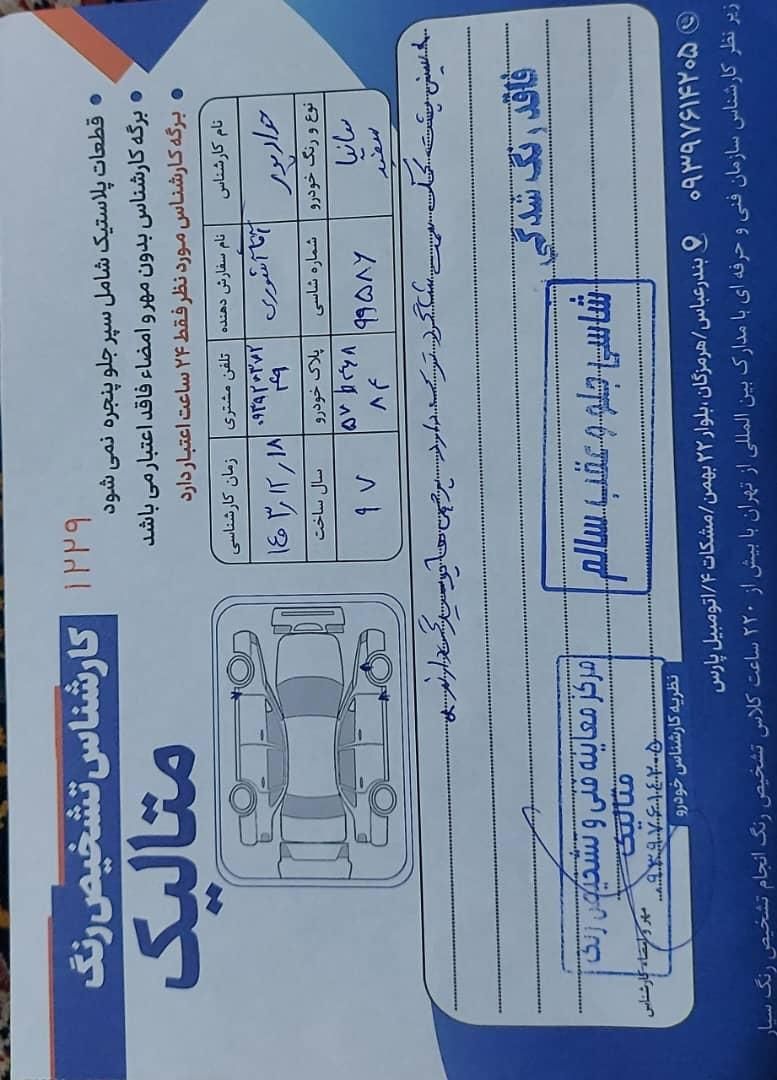 کارشناس تشخیص رنگ
متالیک
۱۲۲۹
• قطعات پلاستیک شامل سپر جلو پنجره نمی شود
• برگه کارشناس بدون مهر و امضاء فاقد اعتبار می باشد
• برگه کارشناس مورد نظر فقط ۲۴ ساعت اعتبار دارد
نام کارشناس
نام سفارش دهنده
تلفن مشتری
زمان کارشناسی
جوادپور
۱۴۰۳/۱۲/۱۸
نوع و رنگ خودرو
شماره شاسی
پلاک خودرو
سال ساخت
ساینا
سفید
۹۹۵۸۷
۹۷
فاقد رنگ شدگی
شاسی جلو و عقب سالم
مرکز معاینه فنی و تشخیص رنگ
متالیک
۰۹۳۹۷۶۱۴۲۰۵
مهر و امضاء کارشناس
نظریه کارشناس خودرو
۰۹۳۹۷۶۱۴۲۰۵
بندرعباس/هرمزگان، بلوار ۲۲ بهمن/مشکات ۴/اتومبیل پارس
زیر نظر کارشناس سازمان فنی و حرفه ای با مدارک بین المللی از تهران با بیش از ۲۲۰ ساعت کلاس تشخیص رنگ انجام تشخیص رنگ سیار